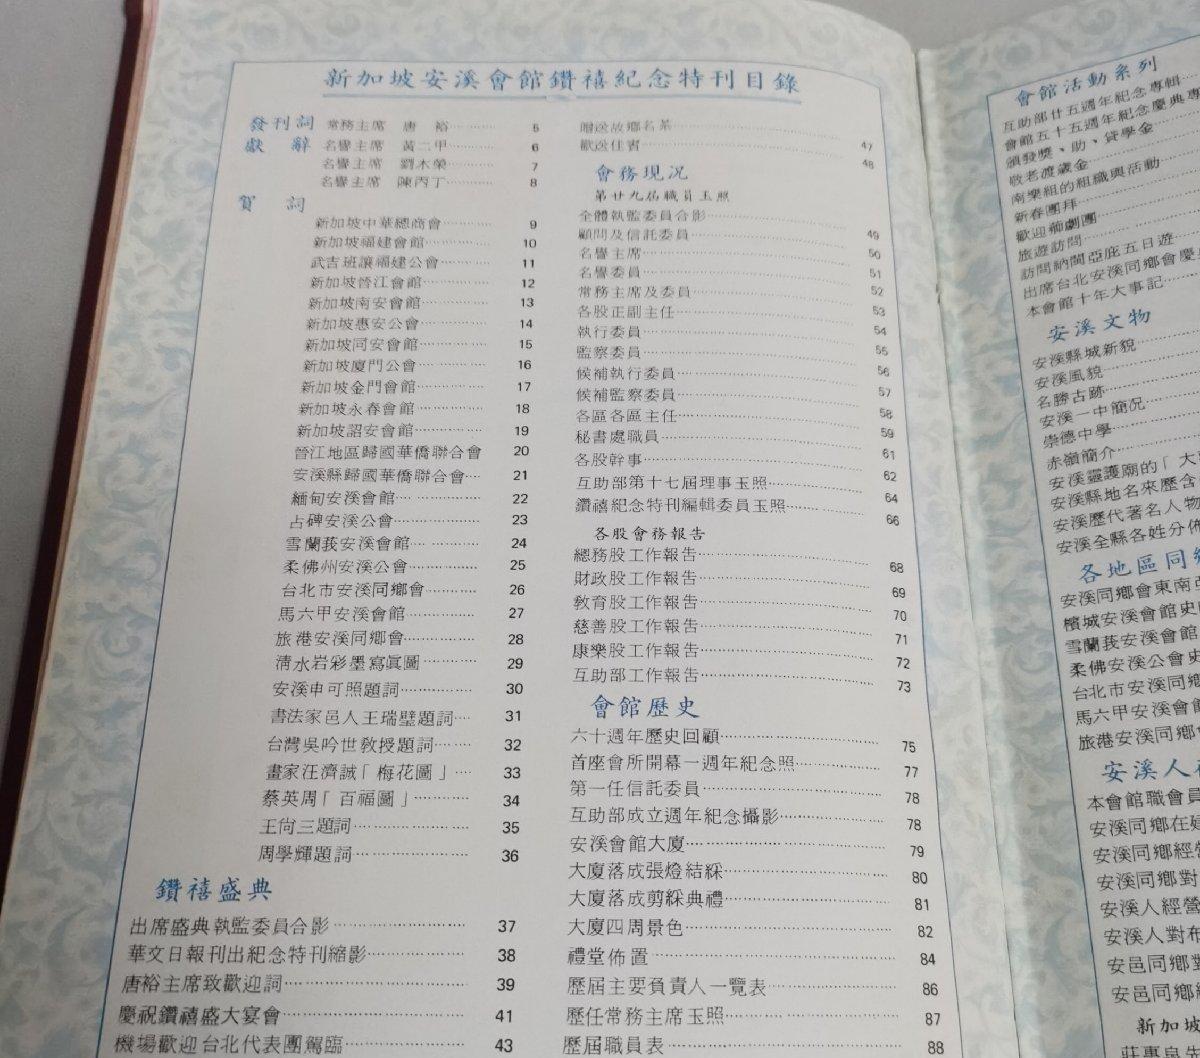 新加坡安溪會館鑽禧紀念特刊目錄
發刊詞 常務主席 唐 裕 5
獻 辭 名譽主席 黃二甲 6
名譽主席 劉木榮 7
名譽主席 陳丙丁 8
賀 詞
新加坡中華總商會 9
新加坡福建會館 10
武吉班讓福建公會 11
新加坡晉江會館 12
新加坡南安會館 13
新加坡惠安公會 14
新加坡同安會館 15
新加坡廈門公會 16
新加坡金門會館 17
新加坡永春會館 18
新加坡詔安會館 19
晉江地區歸國華僑聯合會 20
安溪縣歸國華僑聯合會 21
緬甸安溪會館 22
占碑安溪公會 23
雪蘭莪安溪會館 24
柔佛州安溪公會 25
台北市安溪同鄉會 26
馬六甲安溪會館 27
旅港安溪同鄉會 28
清水岩彩墨寫眞圖 29
安溪申可照題詞 30
書法家邑人王瑞璧題詞 31
台灣吳吟世敎授題詞 32
畫家汪濟誠「梅花圖」 33
蔡英周「百福圖」 34
王尙三題詞 35
周學輝題詞 36
鑽禧盛典
出席盛典執監委員合影 37
華文日報刊出紀念特刊縮影 38
唐裕主席致歡迎詞 39
慶祝鑽禧盛大宴會 41
機場歡迎台北代表團駕臨 43
贈送故鄉名茶 47
歡送佳賓 48
會務現況
第廿九屆職員玉照
全體執監委員合影 49
顧問及信託委員 50
名譽主席 51
名譽委員 52
常務主席及委員 53
各股正副主任 54
執行委員 55
監察委員 56
候補執行委員 57
候補監察委員 58
各區各區主任 59
秘書處職員 61
各股幹事 62
互助部第十七屆理事玉照 64
鑽禧紀念特刊編輯委員玉照 66
各股會務報告
總務股工作報告 68
財政股工作報告 69
敎育股工作報告 70
慈善股工作報告 71
康樂股工作報告 72
互助部工作報告 73
會館歷史
六十週年歷史回顧 75
首座會所開幕一週年紀念照 77
第一任信託委員 78
互助部成立週年紀念攝影 78
安溪會館大廈 79
大廈落成張燈結綵 80
大廈落成剪綵典禮 81
大廈四周景色 82
禮堂佈置 84
歷屆主要負責人一覽表 86
歷任常務主席玉照 87
歷屆職員表 88
會館活動系列
互助部廿五週年紀念專輯
會館五十五週年紀念慶典專
頒發獎、助、貸學金
敬老渡歲金
南樂組的組織與活動
新春團拜
歡迎薌劇團
旅遊訪問
訪問納閩亞庇五日遊
出席台北安溪同鄉會慶
本會館十年大事記
安溪文物
安溪縣城新貌
安溪風貌
名勝古跡
安溪一中簡況
崇德中學
赤嶺簡介
安溪靈護廟的「大
安溪縣地名來歷含
安溪歷代著名人物
安溪全縣各姓分佈
各地區同鄉
安溪同鄉會東南亞
檳城安溪會館史
雪蘭莪安溪會館
柔佛安溪公會史
台北市安溪同鄉
馬六甲安溪會館
旅港安溪同鄉會
安溪人
本會館職會員
安溪同鄉在
安溪同鄉經營
安溪同鄉對
安溪人經營
安溪人對布
安邑同鄉對
安邑同鄉
新加坡
莊惠泉先